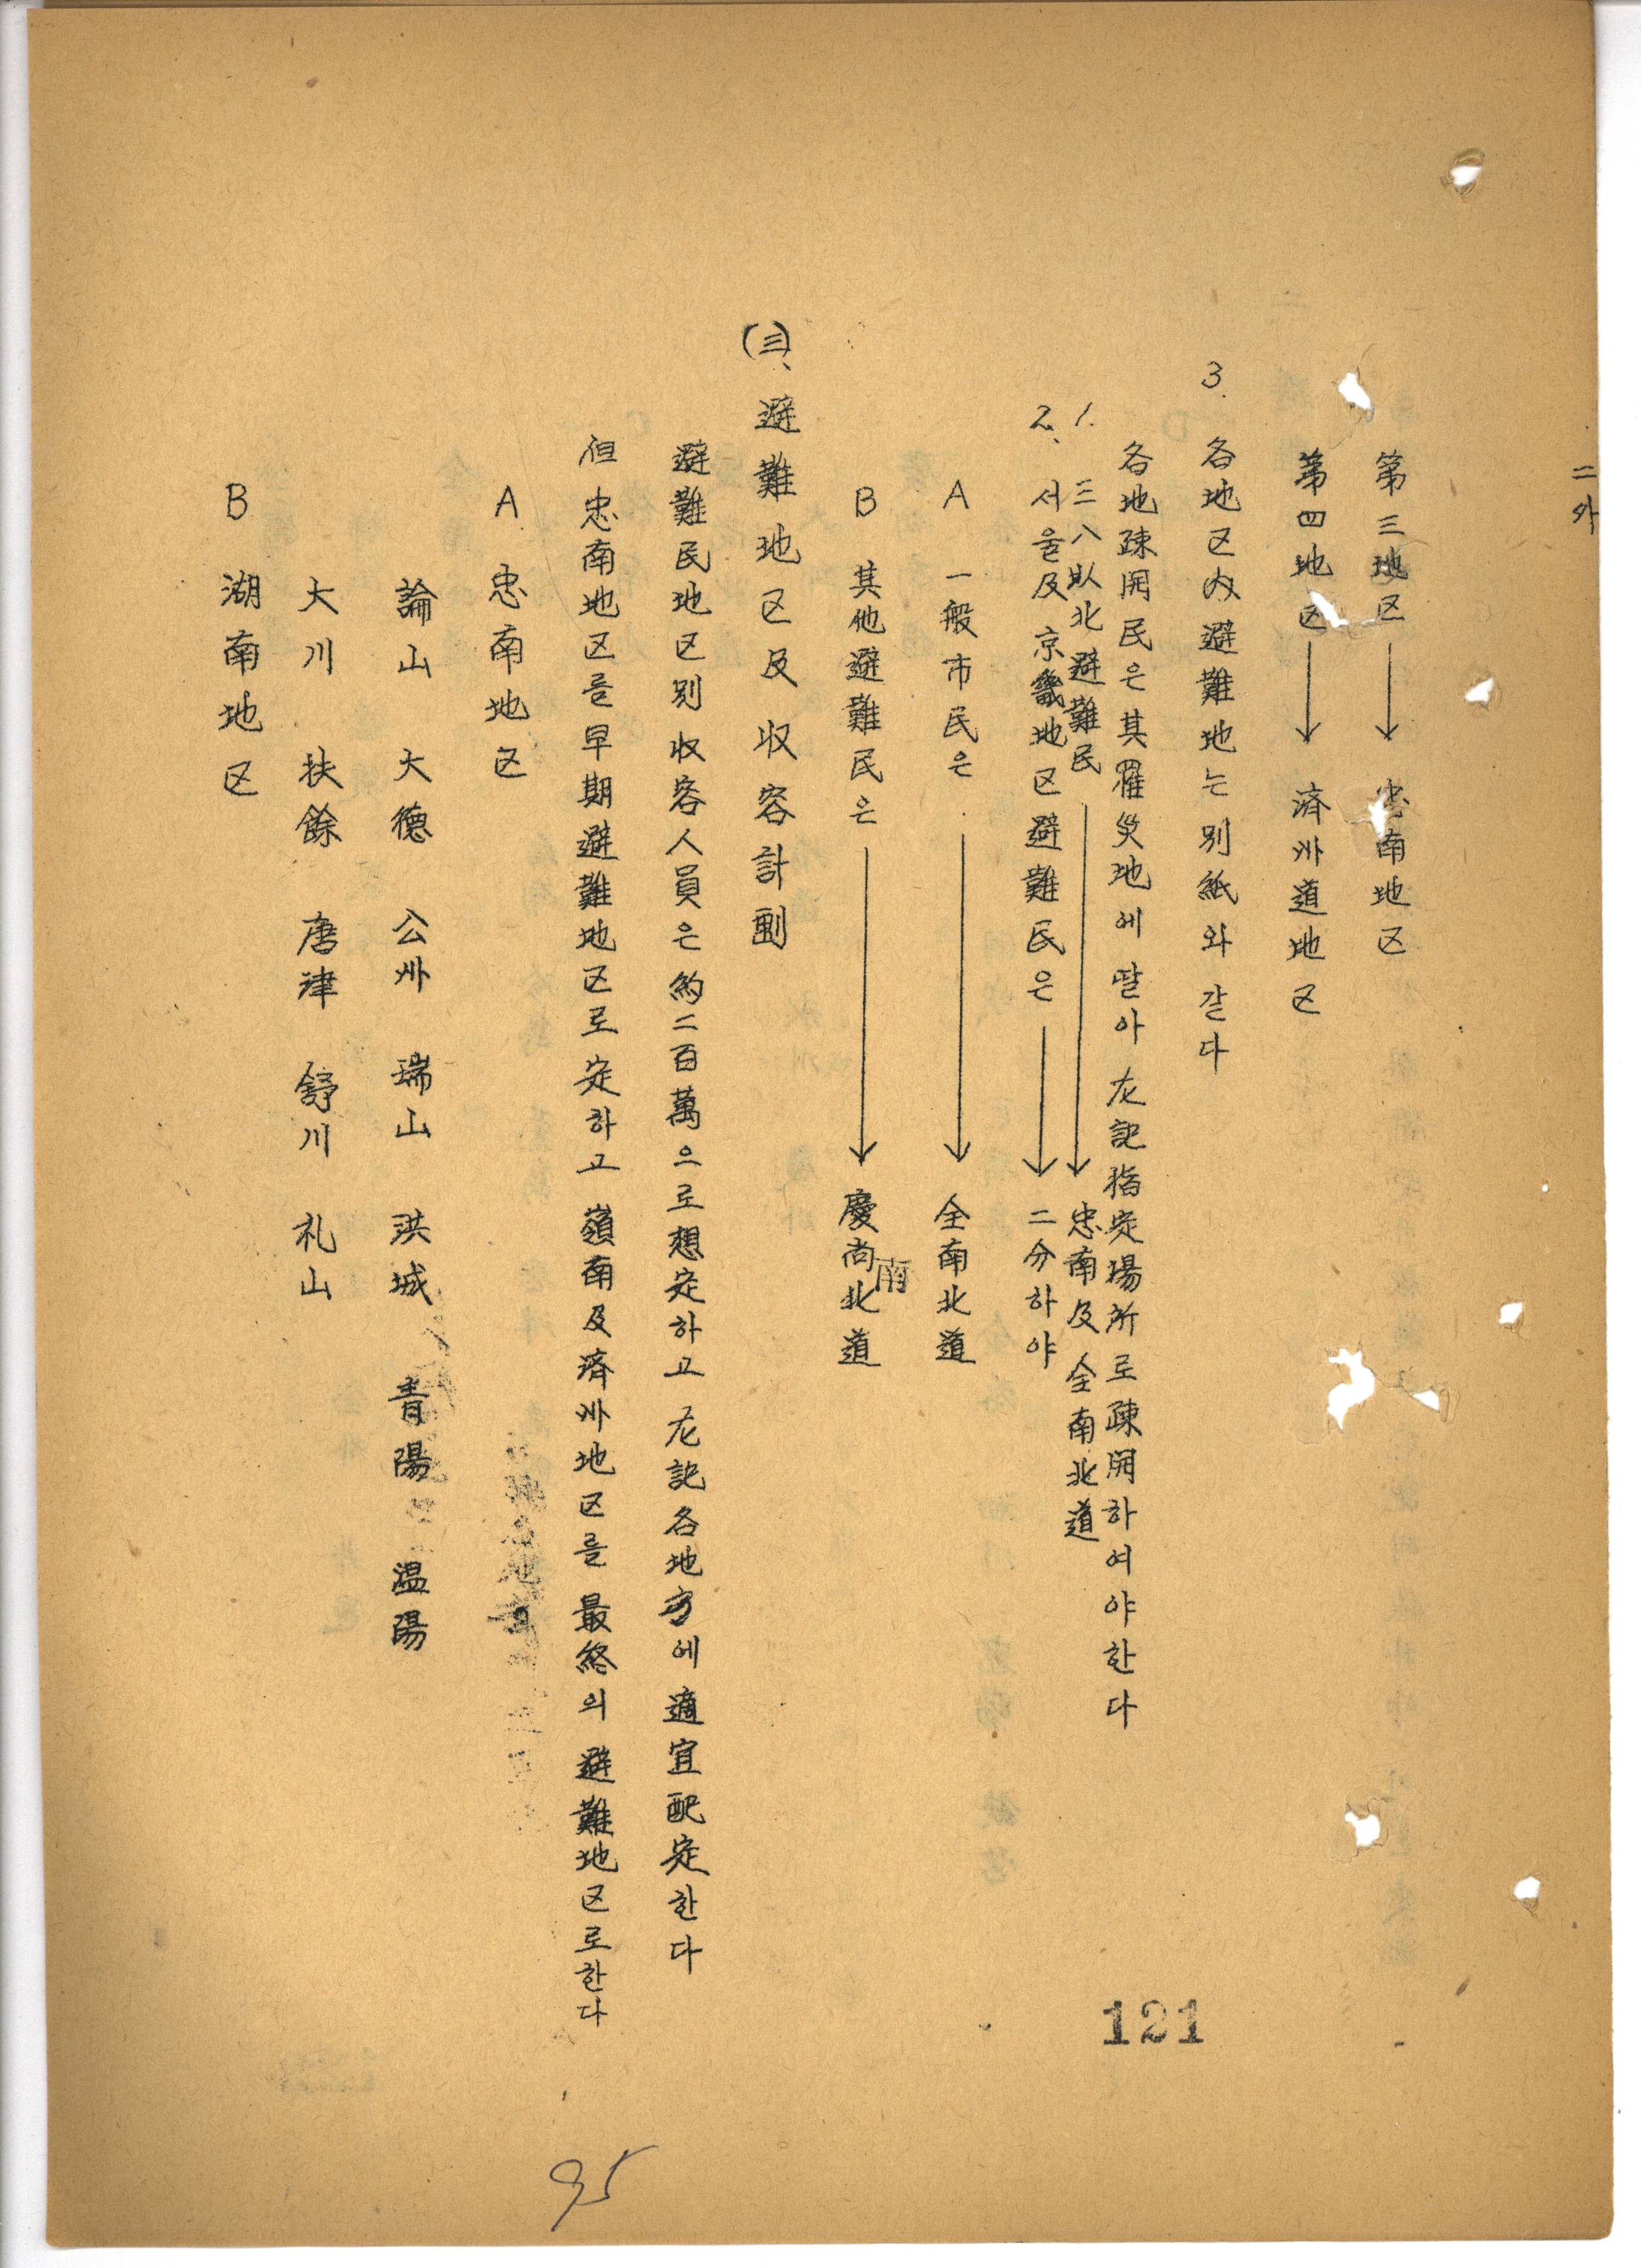 二外
第三地区 → 忠南地区
第四地区 → 済州道地区
3. 各地区内避難地는別紙와같다
各地疎開民은其罹災地에딸아左記指定場所로疎開하여야한다
1. 三八以北避難民 → 忠南及全南北道
2、서울及京畿地区避難民은 → 二分하야
A 一般市民은 → 全南北道
B 其他避難民은 → 慶尚南北道
(三)、避難地区及収容計劃
避難民地区別収容人員은約二百萬으로想定하고左記各地方에適宜配定한다
但忠南地区를早期避難地区로定하고嶺南及済州地区를最終의避難地区로한다
A 忠南地区
論山 大德 公州 瑞山 洪城 青陽 温陽
大川 扶餘 唐津 舒川 礼山
B 湖南地区
121
95